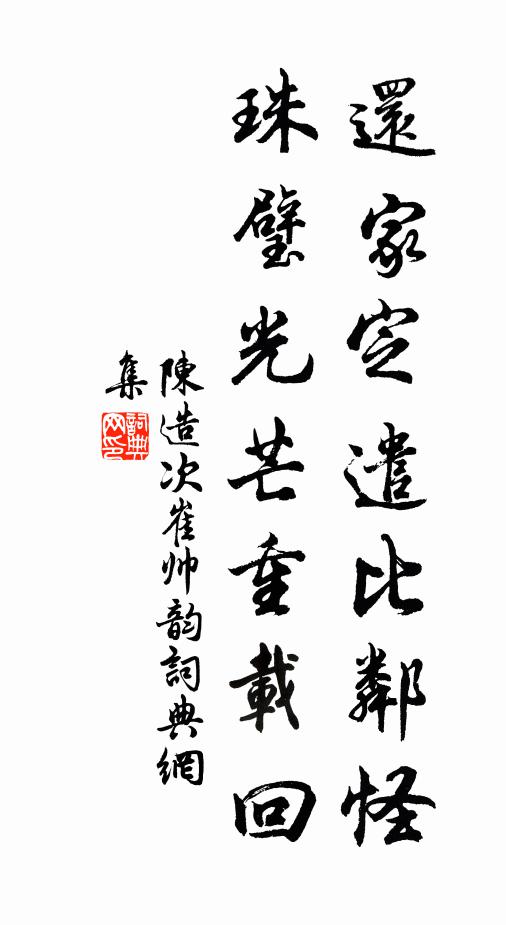 還家定遣比鄰怪
珠璧光芒重載回
陳造次崔帅韵詞典網
集
詞典网印